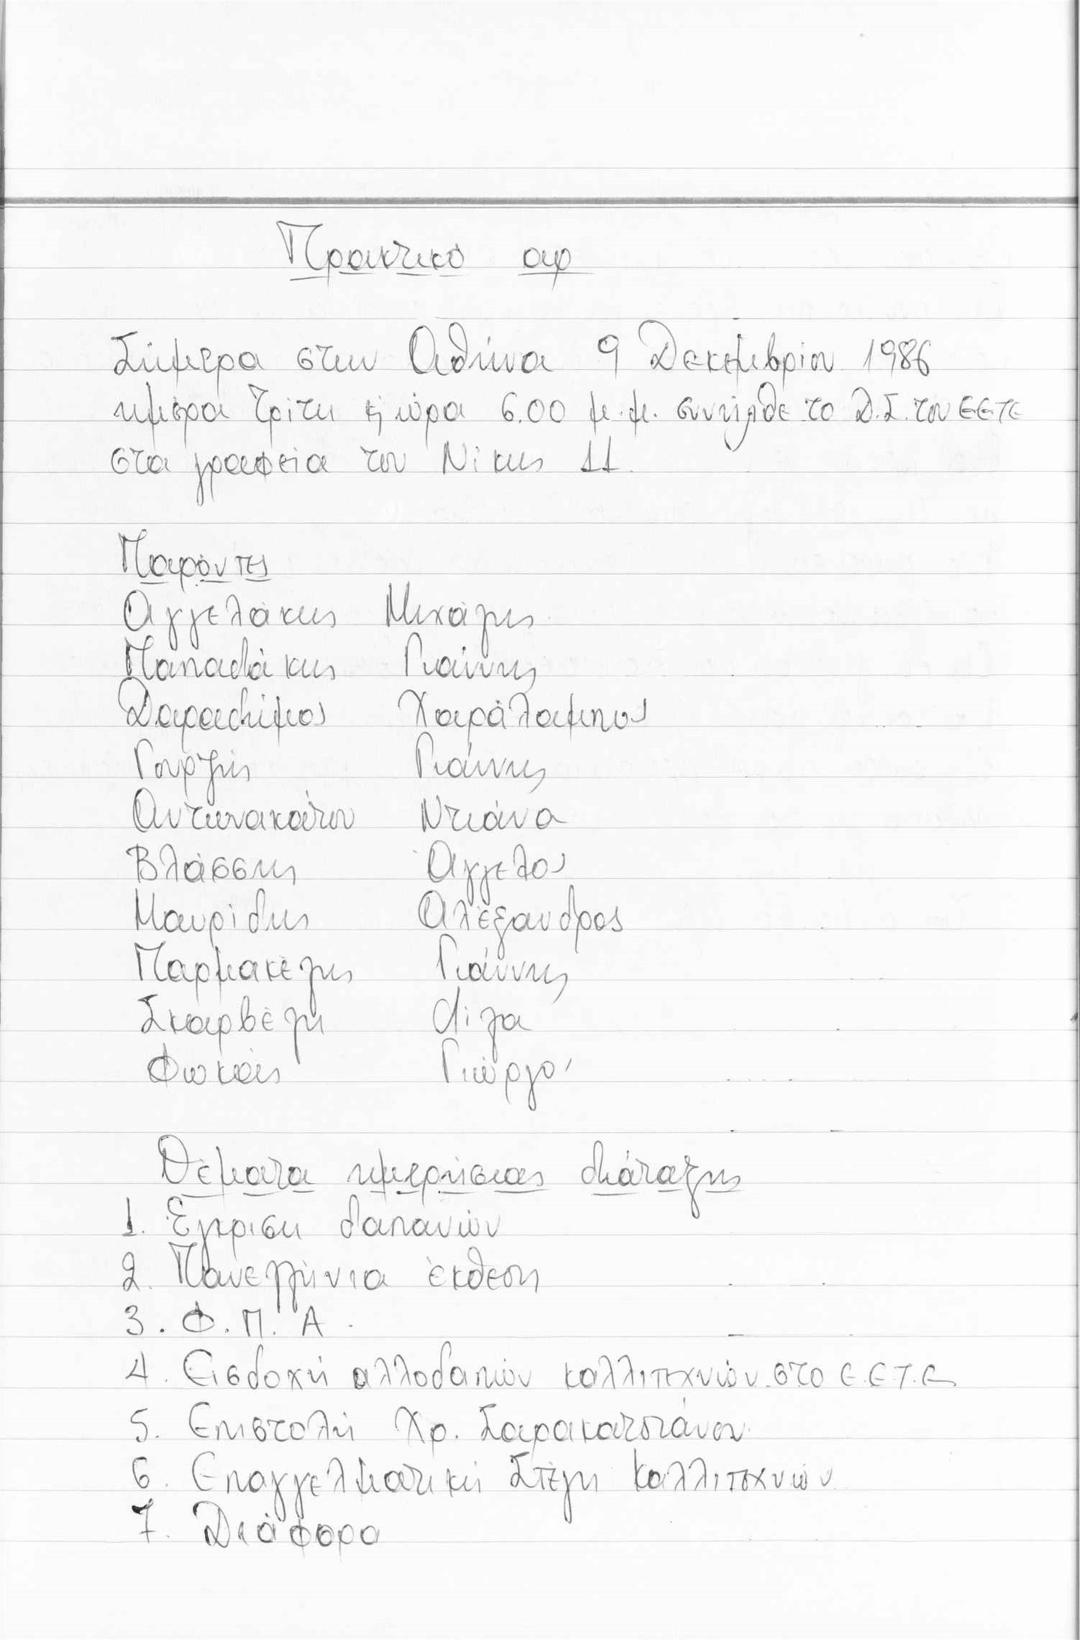 Πρακτικό αρ
Σήμερα στην Αθήνα 9 Δεκεμβρίου 1986
ημέρα Τρίτη &amp; ώρα 6.00 μ.μ. συνήλθε το Δ.Σ. του ΕΕΤΕ
στα γραφεία του Νίκης 11.
Παρόντες
Αγγελάκης Μιχάλης
Παπαδάκης Γιάννης
Δαραδήμος Χαράλαμπος
Γουρζής Γιάννης
Αντωνακάτου Ντιάνα
Βλάσσης Άγγελος
Μαυρίδης Αλέξανδρος
Παρμακέλης Γιάννης
Σκαρβέλη Λίζα
Φωκάς Γιώργος
Θέματα ημερήσιας διάταξης
1. Έγκριση δαπανών
2. Πανελλήνια έκθεση
3. Φ.Π.Α.
4. Εισδοχή αλλοδαπών καλλιτεχνών στο Ε.Ε.Τ.Ε.
5. Επιστολή Χρ. Σαρακατσιάνου
6. Επαγγελματική Στέγη Καλλιτεχνών
7. Διάφορα